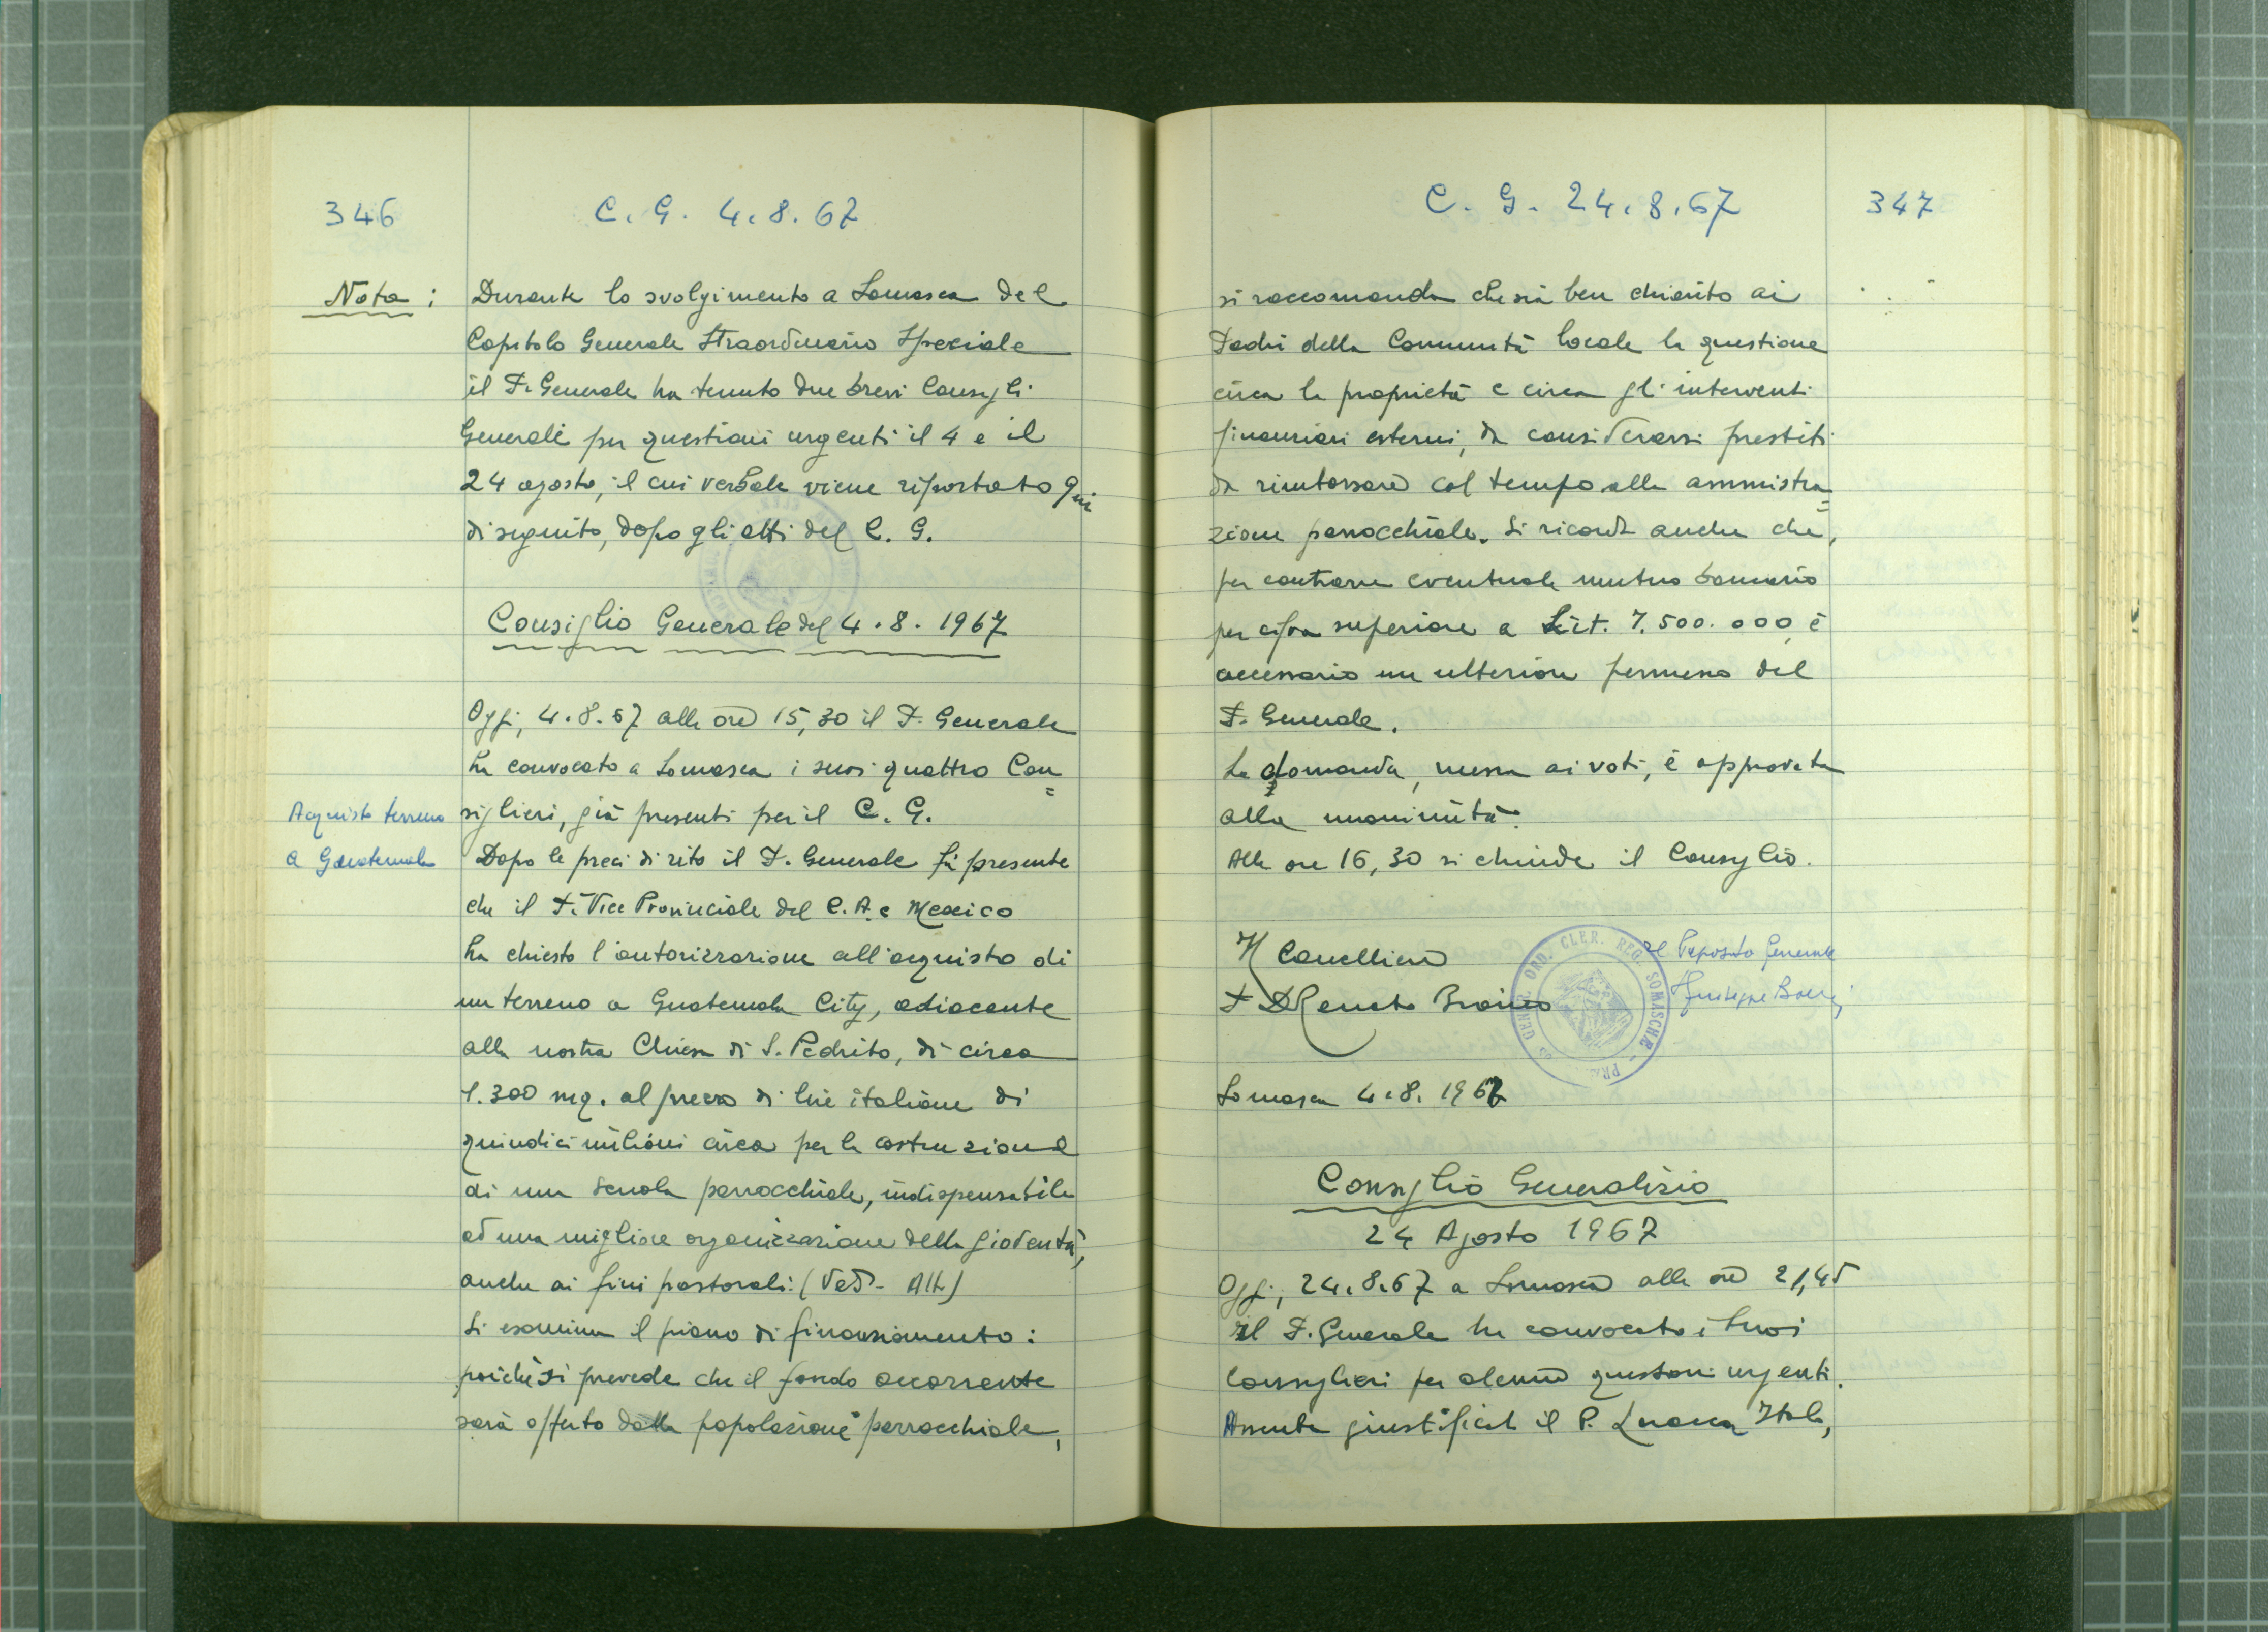 346
C. G. 4.8.67
Nota :
Durante lo svolgimento a Somasca del
Capitolo Generale Straordinario Speciale
il P. Generale ha tenuto due brevi Consigli
Generali per questioni urgenti il 4 e il
24 agosto, il cui verbale viene riportato qui
di seguito, dopo gli atti del C. G.
Consiglio Generale del 4.8.1967
Oggi, 4.8.67 alle ore 15,30 il P. Generale
ha convocato a Somasca i suoi quattro Con=
siglieri, già presenti per il C. G.
Acquisto terreno
a Guatemala
Dopo le preci di rito il P. Generale fa presente
che il P. Vice Provinciale del C.A. e Mexico
ha chiesto l'autorizzazione all'acquisto di
un terreno a Guatemala City, adiacente
alla nostra Chiesa di S. Pedrito, di circa
1.300 mq. al prezzo di lire italiane di
quindici milioni circa per la costruzione
di una scuola parrocchiale, indispensabile
ad una migliore organizzazione della gioventù,
anche ai fini pastorali: (Ved. All.)
Si esamina il piano di finanziamento:
poiché si prevede che il fondo occorrente
sarà offerto dalla popolazione parrocchiale,
C. G. 24.8.67
347
si raccomanda che sia ben chiarito ai
Padri della Comunità locale la questione
circa la proprietà e circa gli interventi
finanziari esterni, da considerarsi prestiti
da rimborsare col tempo alla ammistra=
zione parrocchiale. Si ricorda anche che,
per contrarre eventuale mutuo bancario
per cifra superiore a Lit. 7.500.000, è
necessario un ulteriore permesso del
P. Generale.
La domanda, messa ai voti, è approvata
alla unanimità.
Alle ore 16,30 si chiude il Consiglio.
Il Cancelliere
P. D. Renato Bianco
Il Preposito Generale
Giuseppe Boeris
GEN. ORD. CLER. REG. SOMASCHAE - PRAE
Somasca 4.8.1967
Consiglio Generalizio
24 Agosto 1967
Oggi, 24.8.67 a Somasca alle ore 21,45
il P. Generale ha convocato i suoi
Consiglieri per alcune questioni urgenti.
Assente giustificato il P. Laracca Italo,